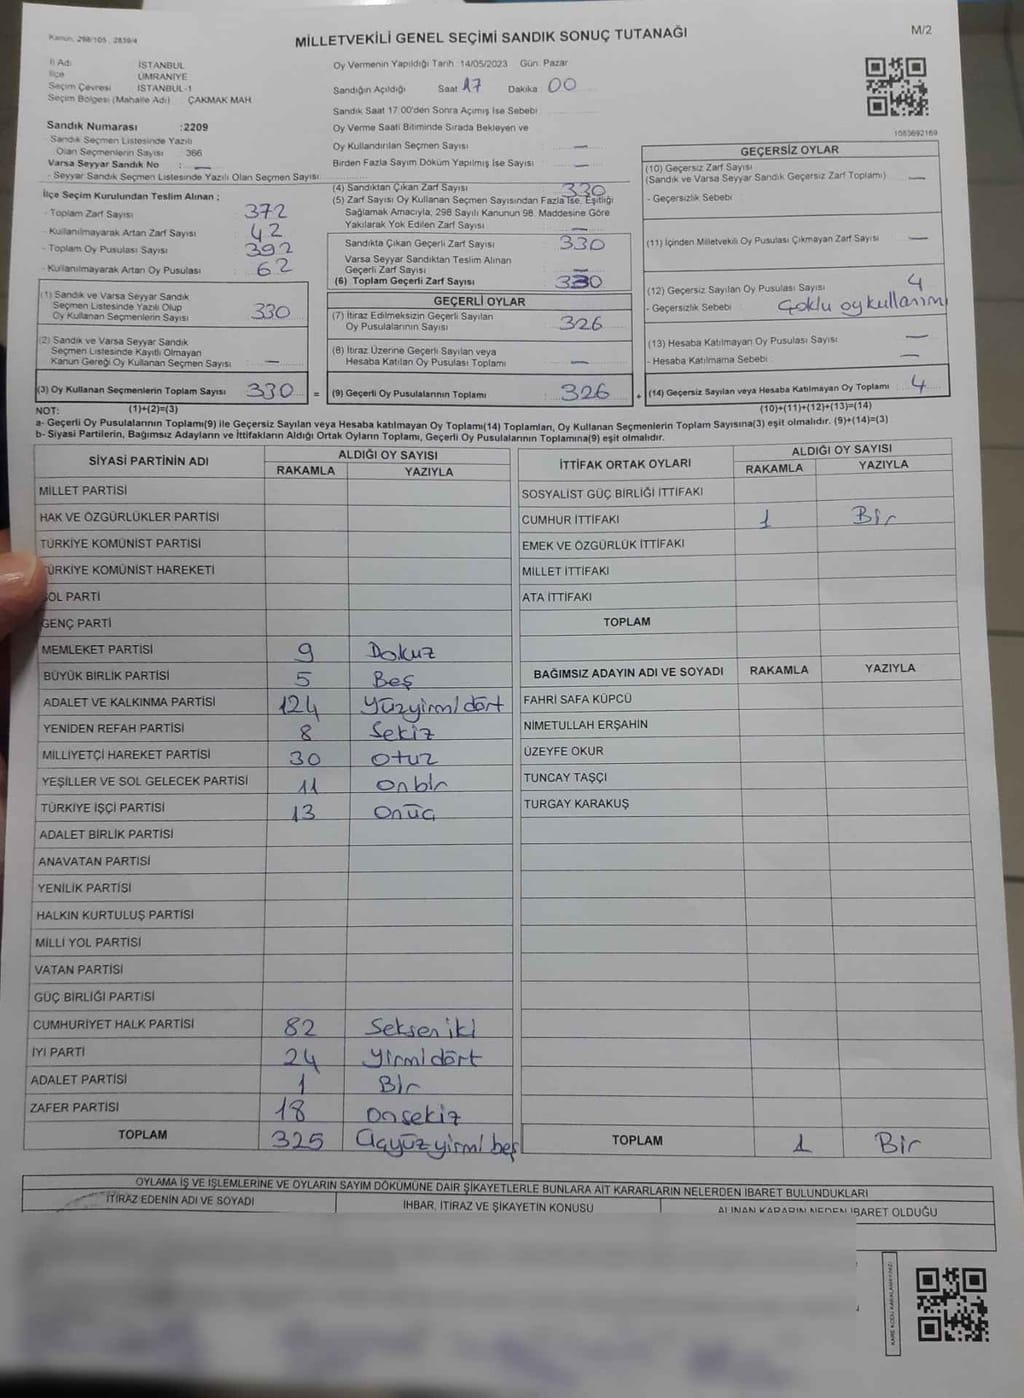 Kanun, 298/105, 2839/4
M/2
MİLLETVEKİLİ GENEL SEÇİMİ SANDIK SONUÇ TUTANAĞI
İl Adı İSTANBUL
İlçe ÜMRANİYE
Seçim Çevresi İSTANBUL-1
Seçim Bölgesi (Mahalle Adı) ÇAKMAK MAH
Sandık Numarası :2209
Sandık Seçmen Listesinde Yazılı
Olan Seçmenlerin Sayısı 366
Varsa Seyyar Sandık No : —
- Seyyar Sandık Seçmen Listesinde Yazılı Olan Seçmen Sayısı
Oy Vermenin Yapıldığı Tarih :14/05/2023 Gün: Pazar
Sandığın Açıldığı Saat 17 Dakika 00
Sandık Saat 17:00'den Sonra Açımış İse Sebebi
Oy Verme Saati Bitiminde Sırada Bekleyen ve
Oy Kullandırılan Seçmen Sayısı —
Birden Fazla Sayım Döküm Yapılmış İse Sayısı —
1083692169
İlçe Seçim Kurulundan Teslim Alınan ;
- Toplam Zarf Sayısı 372
- Kullanılmayarak Artan Zarf Sayısı 42
- Toplam Oy Pusulası Sayısı 392
- Kullanılmayarak Artan Oy Pusulası 62
(1) Sandık ve Varsa Seyyar Sandık
Seçmen Listesinde Yazılı Olup
Oy Kullanan Seçmenlerin Sayısı 330
(2) Sandık ve Varsa Seyyar Sandık
Seçmen Listesinde Kayıtlı Olmayan
Kanun Gereği Oy Kullanan Seçmen Sayısı —
(3) Oy Kullanan Seçmenlerin Toplam Sayısı 330 =
(4) Sandıktan Çıkan Zarf Sayısı 330
(5) Zarf Sayısı Oy Kullanan Seçmen Sayısından Fazla İse, Eşitliği
Sağlamak Amacıyla, 298 Sayılı Kanunun 98. Maddesine Göre
Yakılarak Yok Edilen Zarf Sayısı —
Sandıkta Çıkan Geçerli Zarf Sayısı 330
Varsa Seyyar Sandıktan Teslim Alınan
Geçerli Zarf Sayısı —
(6) Toplam Geçerli Zarf Sayısı 330
GEÇERLİ OYLAR
(7) İtiraz Edilmeksizin Geçerli Sayılan
Oy Pusulalarının Sayısı 326
(8) İtiraz Üzerine Geçerli Sayılan veya
Hesaba Katılan Oy Pusulası Toplamı —
(9) Geçerli Oy Pusulalarının Toplamı 326 +
GEÇERSİZ OYLAR
(10) Geçersiz Zarf Sayısı
(Sandık ve Varsa Seyyar Sandık Geçersiz Zarf Toplamı) —
- Geçersizlik Sebebi
(11) İçinden Milletvekili Oy Pusulası Çıkmayan Zarf Sayısı —
(12) Geçersiz Sayılan Oy Pusulası Sayısı 4
- Geçersizlik Sebebi Çoklu oy kullanım
(13) Hesaba Katılmayan Oy Pusulası Sayısı —
- Hesaba Katılmama Sebebi —
(14) Geçersiz Sayılan veya Hesaba Katılmayan Oy Toplamı 4
NOT: (1)+(2)=(3) (10)+(11)+(12)+(13)=(14)
a- Geçerli Oy Pusulalarının Toplamı(9) ile Geçersiz Sayılan veya Hesaba katılmayan Oy Toplamı(14) Toplamları, Oy Kullanan Seçmenlerin Toplam Sayısına(3) eşit olmalıdır. (9)+(14)=(3)
b- Siyasi Partilerin, Bağımsız Adayların ve İttifakların Aldığı Ortak Oyların Toplamı, Geçerli Oy Pusulalarının Toplamına(9) eşit olmalıdır.
SİYASİ PARTİNİN ADI ALDIĞI OY SAYISI
RAKAMLA YAZIYLA
MİLLET PARTİSİ
HAK VE ÖZGÜRLÜKLER PARTİSİ
TÜRKİYE KOMÜNİST PARTİSİ
ÜRKİYE KOMÜNİST HAREKETİ
OL PARTİ
GENÇ PARTİ
MEMLEKET PARTİSİ 9 Dokuz
BÜYÜK BİRLİK PARTİSİ 5 Beş
ADALET VE KALKINMA PARTİSİ 124 Yüzyirmidört
YENİDEN REFAH PARTİSİ 8 Sekiz
MİLLİYETÇİ HAREKET PARTİSİ 30 Otuz
YEŞİLLER VE SOL GELECEK PARTİSİ 11 Onbir
TÜRKİYE İŞÇİ PARTİSİ 13 Onüç
ADALET BİRLİK PARTİSİ
ANAVATAN PARTİSİ
YENİLİK PARTİSİ
HALKIN KURTULUŞ PARTİSİ
MİLLİ YOL PARTİSİ
VATAN PARTİSİ
GÜÇ BİRLİĞİ PARTİSİ
CUMHURİYET HALK PARTİSİ 82 Seksen iki
İYİ PARTİ 24 Yirmidört
ADALET PARTİSİ 1 Bir
ZAFER PARTİSİ 18 Onsekiz
TOPLAM 325 Üçyüzyirmibeş
İTTİFAK ORTAK OYLARI ALDIĞI OY SAYISI
RAKAMLA YAZIYLA
SOSYALİST GÜÇ BİRLİĞİ İTTİFAKI
CUMHUR İTTİFAKI 1 Bir
EMEK VE ÖZGÜRLÜK İTTİFAKI
MİLLET İTTİFAKI
ATA İTTİFAKI
TOPLAM
BAĞIMSIZ ADAYIN ADI VE SOYADI RAKAMLA YAZIYLA
FAHRİ SAFA KÜPCÜ
NİMETULLAH ERŞAHİN
ÜZEYFE OKUR
TUNCAY TAŞÇI
TURGAY KARAKUŞ
TOPLAM 1 Bir
OYLAMA İŞ VE İŞLEMLERİNE VE OYLARIN SAYIM DÖKÜMÜNE DAİR ŞİKAYETLERLE BUNLARA AİT KARARLARIN NELERDEN İBARET BULUNDUKLARI
İTİRAZ EDENİN ADI VE SOYADI İHBAR, İTİRAZ VE ŞİKAYETİN KONUSU ALINAN KARARIN NEDEN İBARET OLDUĞU